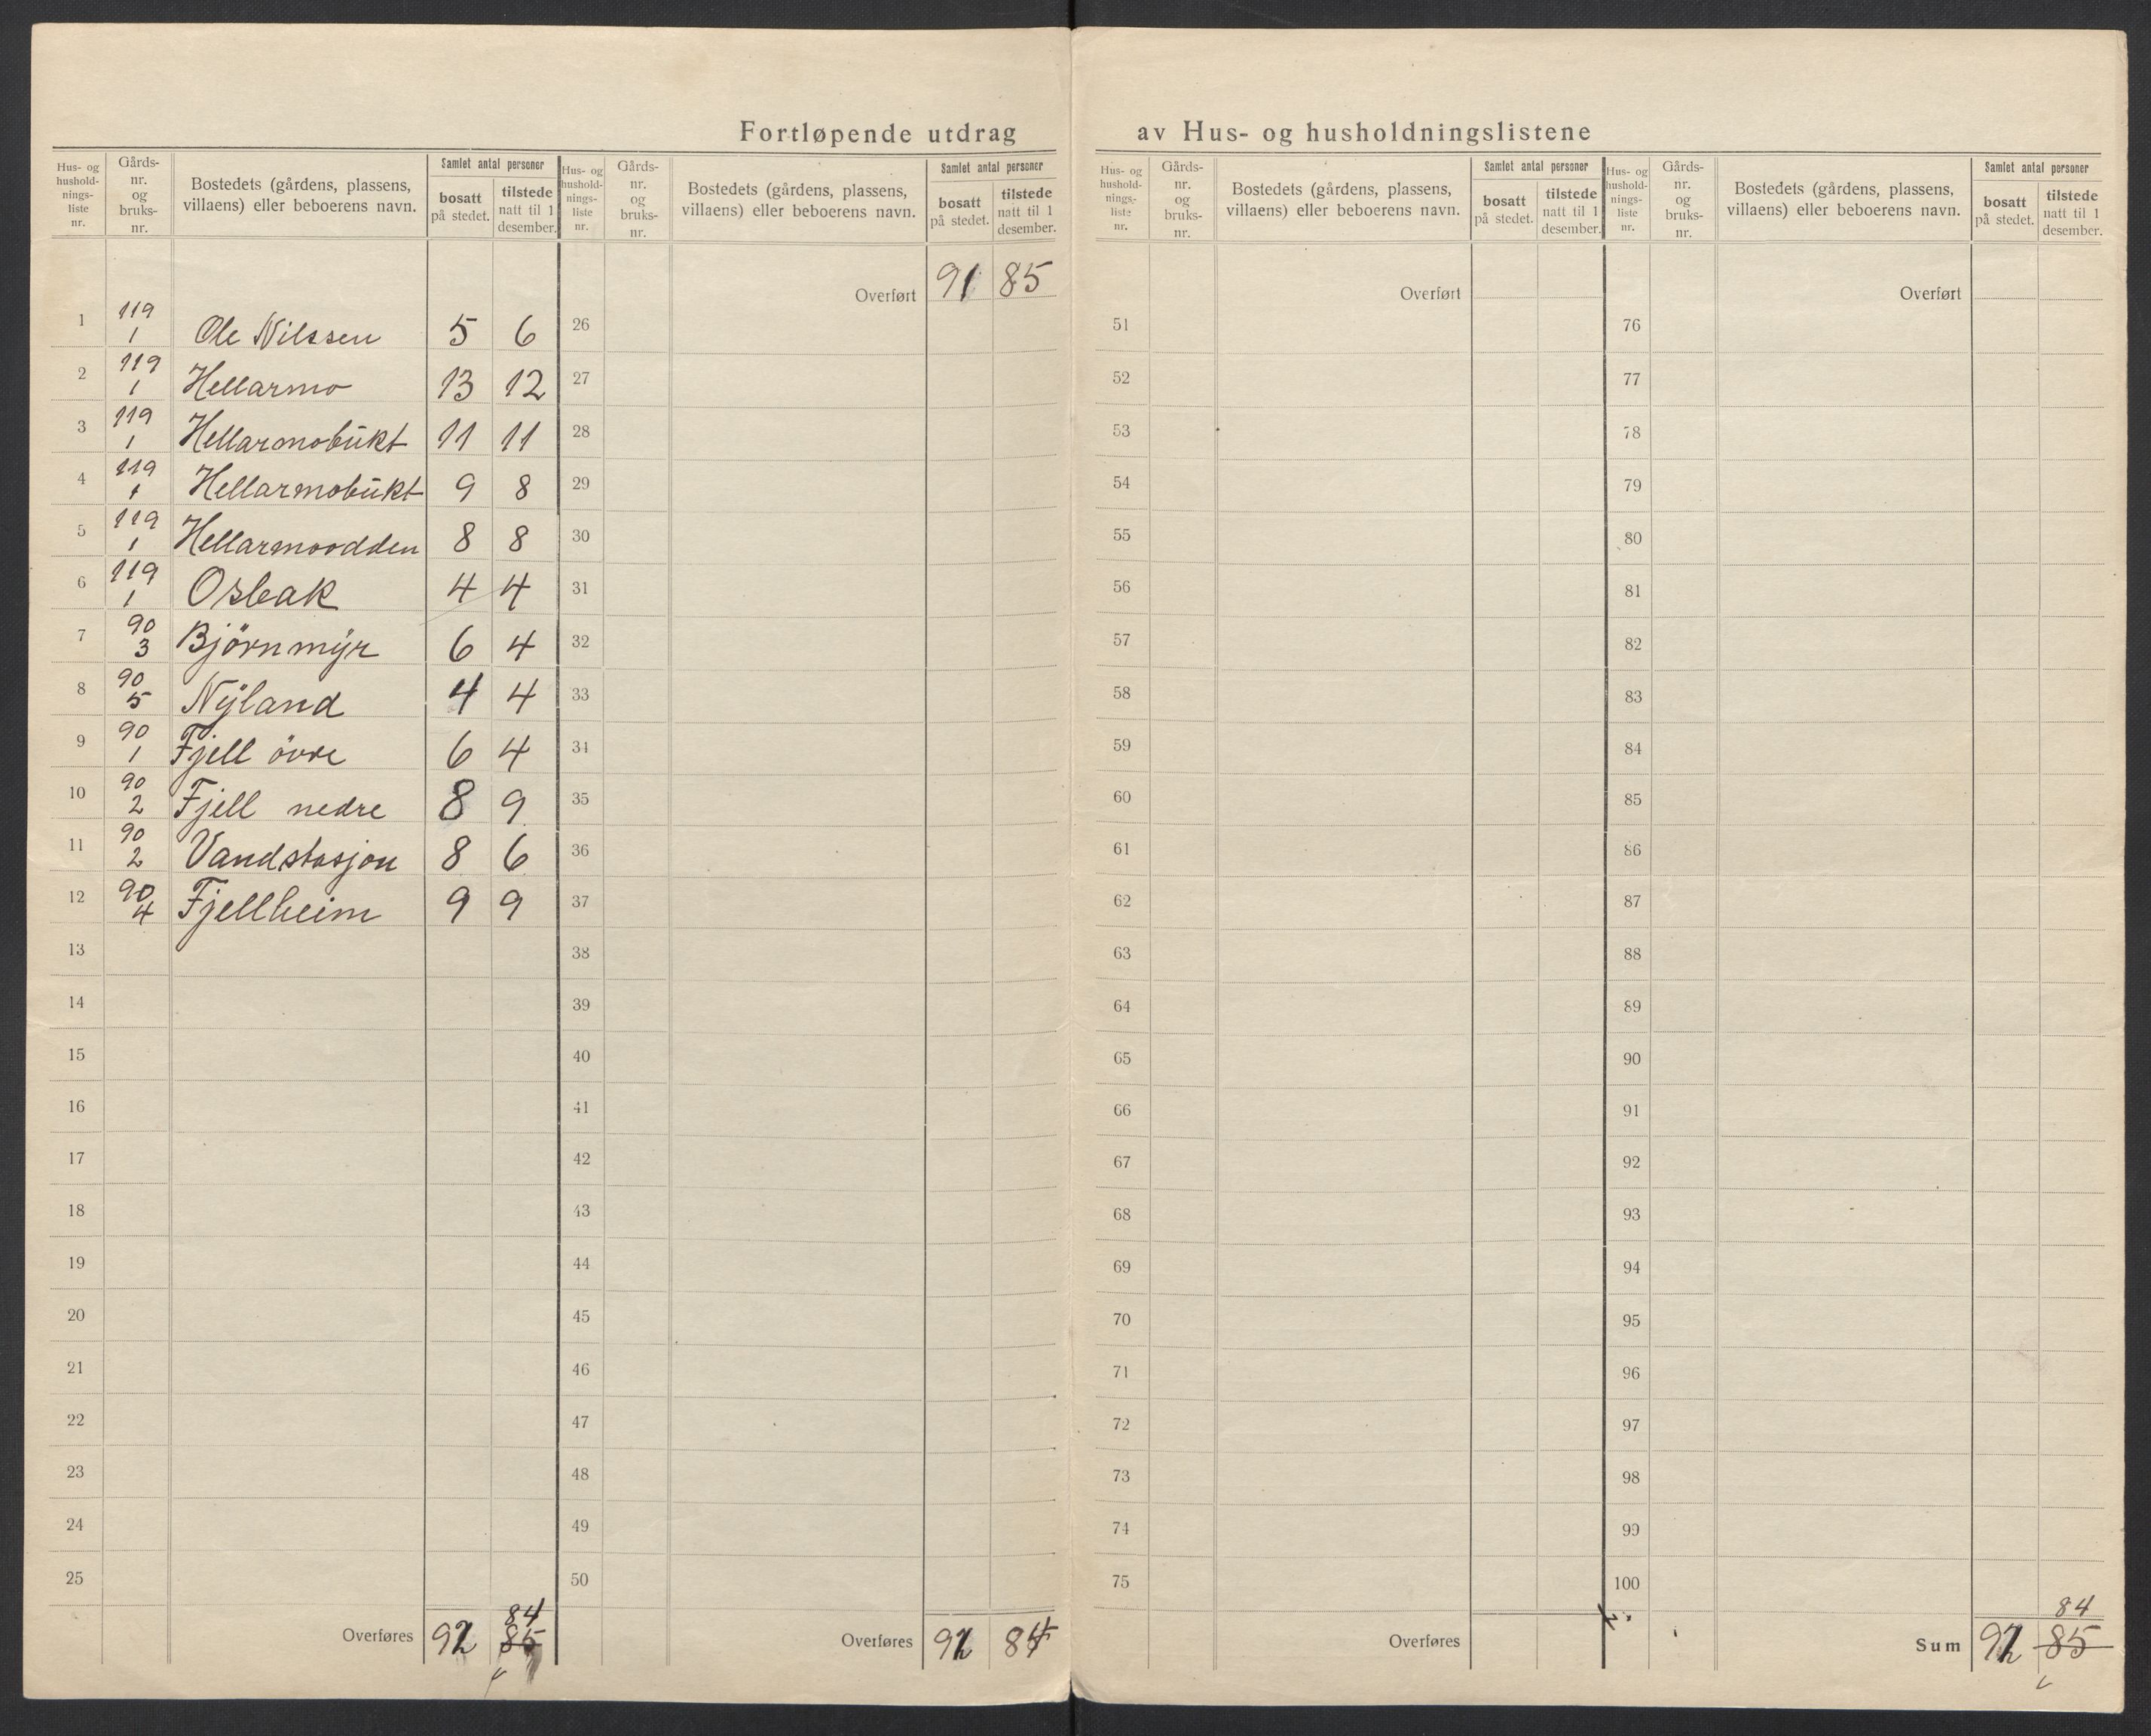 Fortløpende utdrag av Hus- og husholdningslistene
Hus- og husholdnings-liste nr. | Gårds-nr. og bruks-nr. | Bostedets (gårdens, plassens, villaens) eller beboerens navn. | Samlet antal personer | bosatt på stedet. | tilstede natt til 1 desember.
Hus- og husholdnings-liste nr. | Gårds-nr. og bruks-nr. | Bostedets (gårdens, plassens, villaens) eller beboerens navn. | Samlet antal personer | bosatt på stedet. | tilstede natt til 1 desember.
Hus- og husholdnings-liste nr. | Gårds-nr. og bruks-nr. | Bostedets (gårdens, plassens, villaens) eller beboerens navn. | Samlet antal personer | bosatt på stedet. | tilstede natt til 1 desember.
Hus- og husholdnings-liste nr. | Gårds-nr. og bruks-nr. | Bostedets (gårdens, plassens, villaens) eller beboerens navn. | Samlet antal personer | bosatt på stedet. | tilstede natt til 1 desember.
1 119/1 Ole Nilssen 5 6
2 119/1 Hellarmo 13 12
3 119/1 Hellarmobukt 11 11
4 119/1 Hellarmobukt 9 8
5 119/1 Hellarmoodden 8 8
6 119/1 Osbak 4 4
7 90/3 Björnmyr 6 4
8 90/5 Nyland 4 4
9 90/1 Fjell övre 6 4
10 90/2 Fjell nedre 8 9
11 90/2 Vandstasjon 8 6
12 90/4 Fjellheim 9 9
13
14
15
16
17
18
19
20
21
22
23
24
25
84
Overføres 92 85
Overført 91 85
26
27
28
29
30
31
32
33
34
35
36
37
38
39
40
41
42
43
44
45
46
47
48
49
50
Overføres 92 84
Overført
51
52
53
54
55
56
57
58
59
60
61
62
63
64
65
66
67
68
69
70
71
72
73
74
75
Overføres
Overført
76
77
78
79
80
81
82
83
84
85
86
87
88
89
90
91
92
93
94
95
96
97
98
99
100
84
Sum 92 85